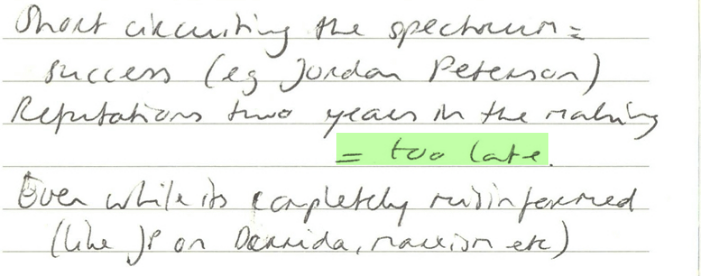 Short circuiting the spectrum =
success (eg Jordan Peterson)
Refutations two years in the making
= too late.
Even while its completely misinformed
(like JP on Derrida, marxism etc)